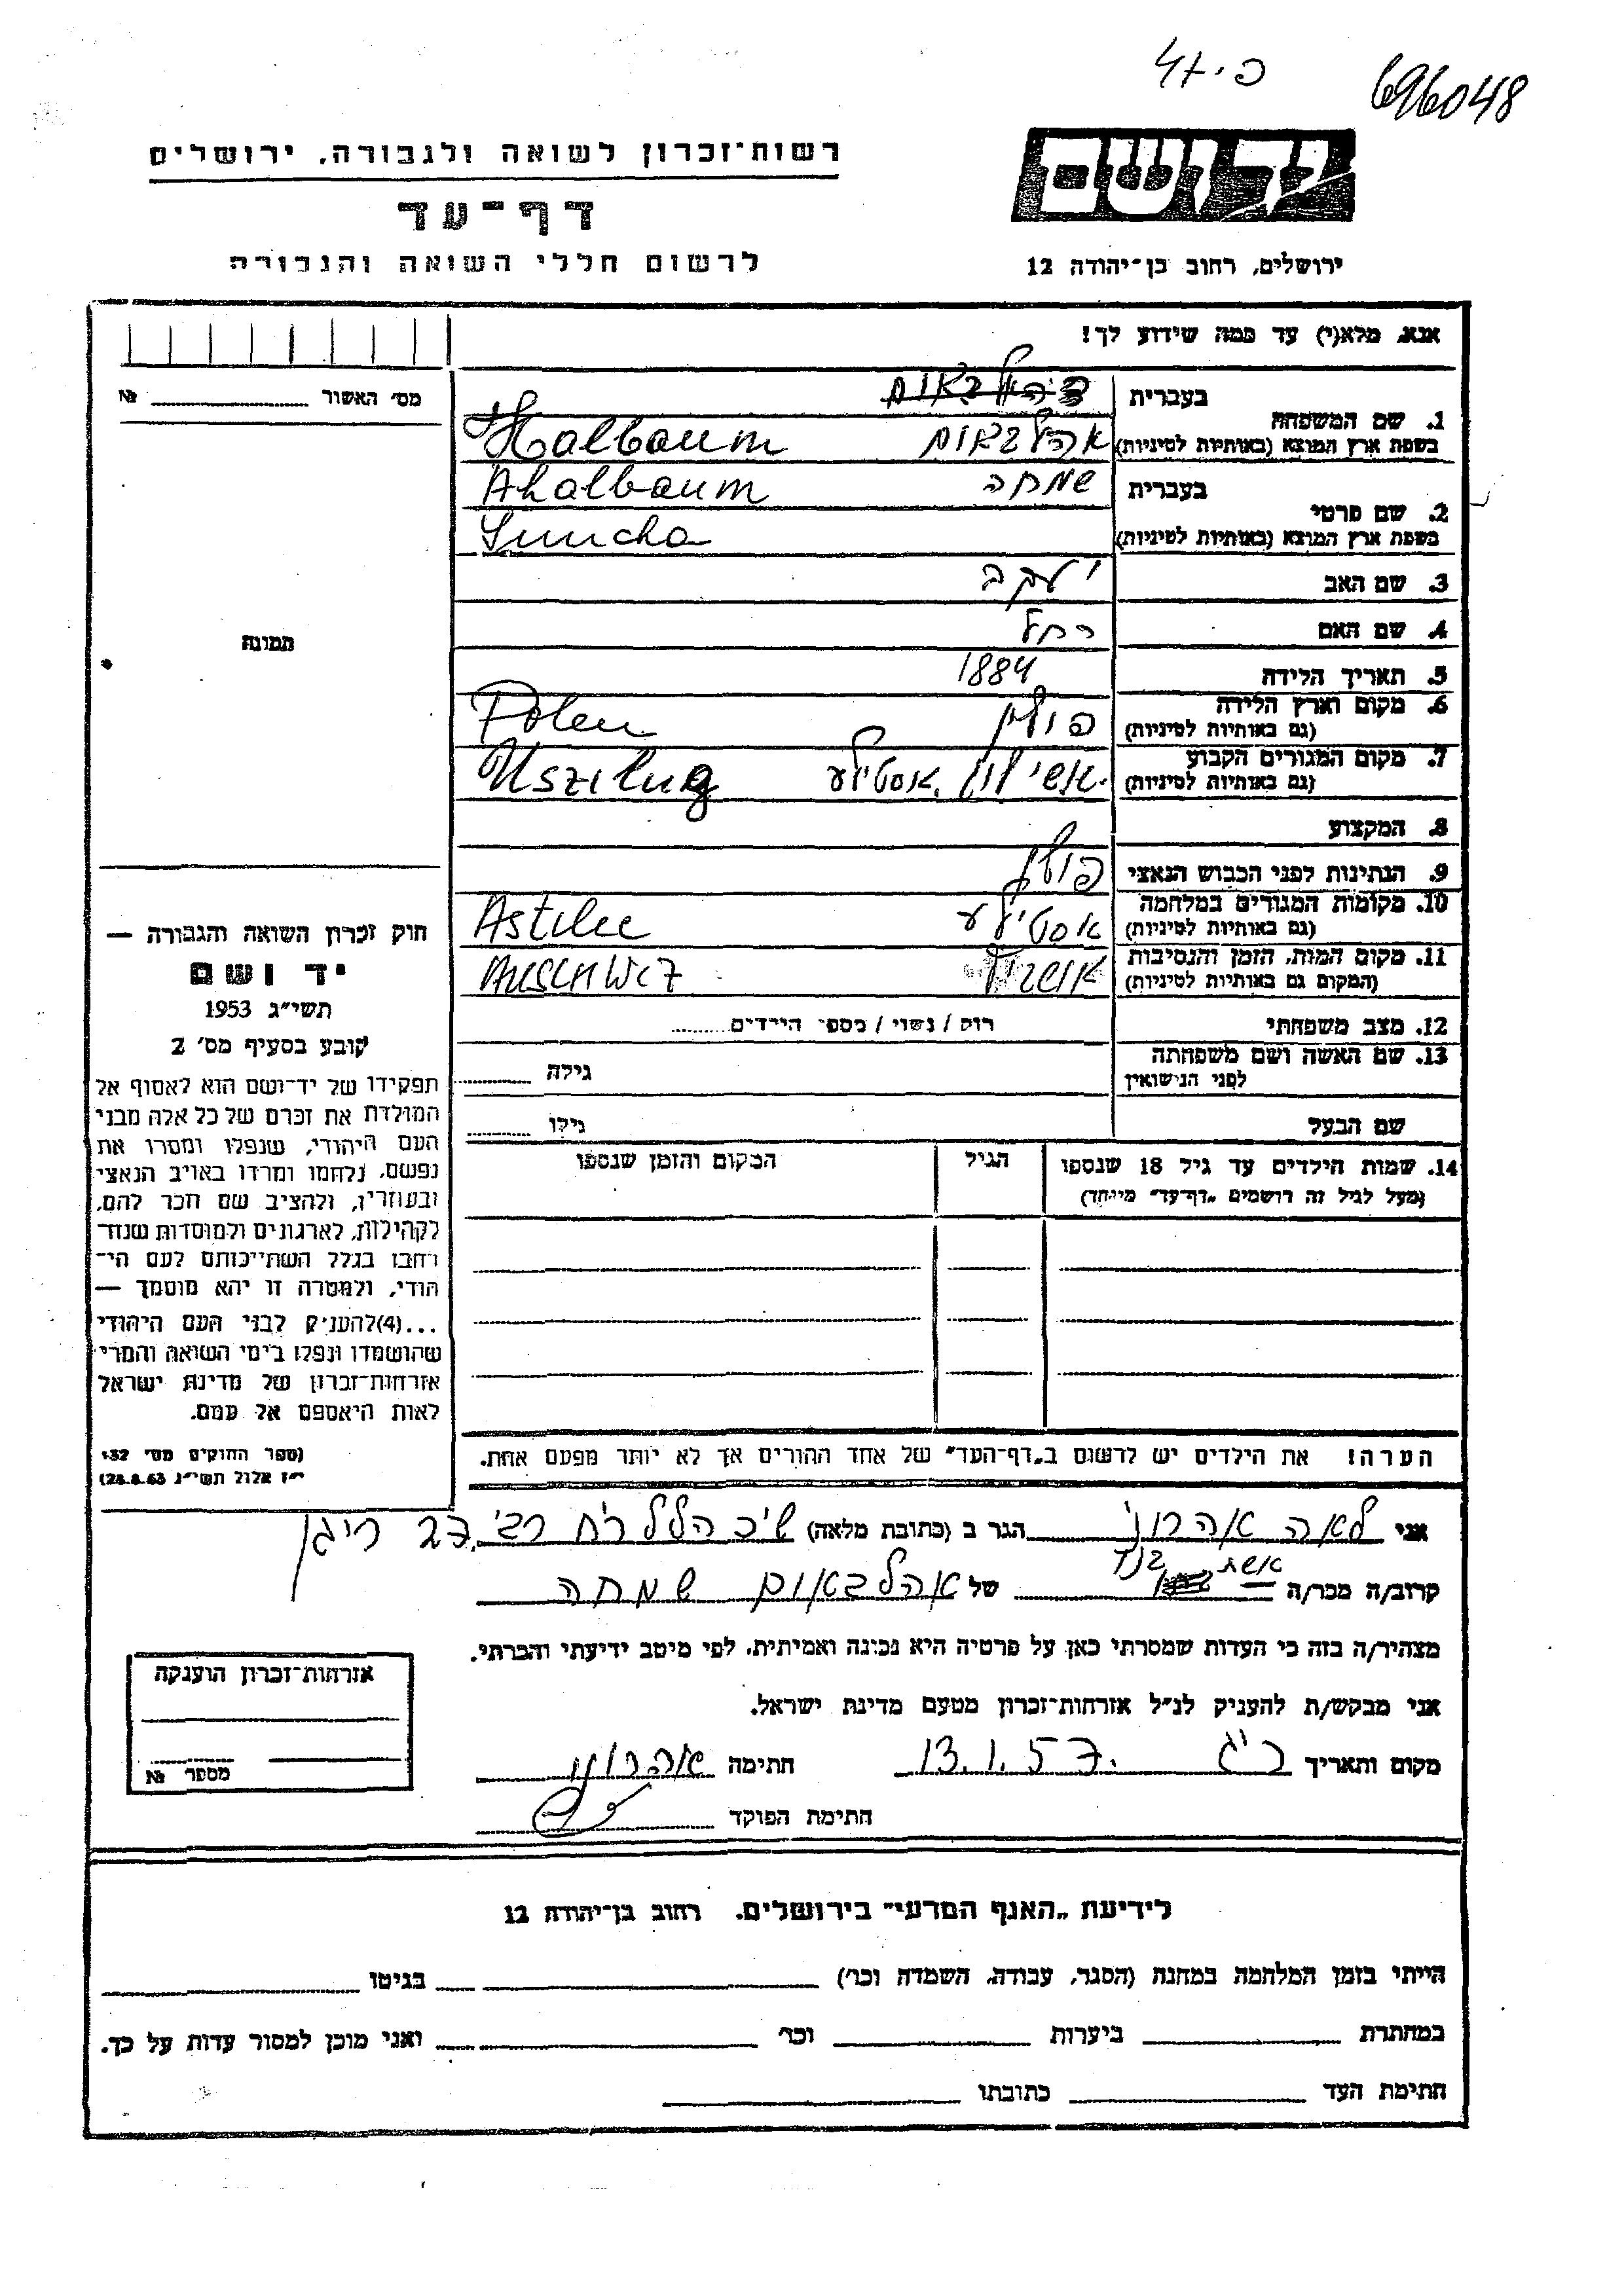 כ.יד 47
696048
יד ושם
רשות־זכרון לשואה ולגבורה, ירושלים
דף־עד
ירושלים, רחוב בן־יהודה 12
לרשום חללי השואה והגבורה
אנא, מלא(י) עד כמה שידוע לך!
מס' האשור №
1. שם המשפחה
בעברית
בשפת ארץ המוצא (באותיות לטיניות) אהלבאום Halbaum
2. שם פרטי
בעברית שמחה Ahalbaum
בשפת ארץ המוצא (באותיות לטיניות) Simcha
3. שם האב יעקב
4. שם האם רחל
5. תאריך הלידה 1884
6. מקום וארץ הלידה פולין Polen
(גם באותיות לטיניות)
7. מקום המגורים הקבוע אסטילע Uszilug
(גם באותיות לטיניות)
8. המקצוע
9. הנתינות לפני הכבוש הנאצי פולין
10. מקומות המגורים במלחמה אסטילע Astile
(גם באותיות לטיניות)
11. מקום המות, הזמן והנסיבות Auschwez
(המקום גם באותיות לטיניות)
12. מצב משפחתי רוק / נשוי / מספר הילדים
13. שם האשה ושם משפחתה גילה
לפני הנישואין
שם הבעל גילו
14. שמות הילדים עד גיל 18 שנספו הגיל המקום והזמן שנספו
(מעל לגיל זה רושמים „דף־עד" מיוחד)
הערה! את הילדים יש לרשום ב„דף־העד" של אחד ההורים אך לא יותר מפעם אחת.
תמונה
חוק זכרון השואה והגבורה —
יד ושם
תשי"ג 1953
קובע בסעיף מס' 2
תפקידו של יד־ושם הוא לאסוף אל
המולדת את זכרם של כל אלה מבני
העם היהודי, שנפלו ומסרו את
נפשם, נלחמו ומרדו באויב הנאצי
ובעוזריו, ולהציב שם וזכר להם,
לקהילות, לארגונים ולמוסדות שנח־
רבו בגלל השתייכותם לעם הי־
הודי, ולמטרה זו יהא מוסמך —
...(4)להעניק לבני העם היהודי
שהושמדו ונפלו בימי השואה והמרי
אזרחות־זכרון של מדינת ישראל
לאות היאספם אל עמם.
(ספר החוקים מס' 132
י"ז אלול תשי"ג 28.8.53)
אני לאה אהרוני הגר ב (כתובת מלאה) שיכ הלל רח רבי 27
קרוב/ה מכר/ה אשת של אהלבאום שמחה
מצהיר/ה בזה כי העדות שמסרתי כאן על פרטיה היא נכונה ואמיתית, לפי מיטב ידיעתי והכרתי.
אני מבקש/ת להעניק לנ"ל אזרחות־זכרון מטעם מדינת ישראל.
מקום ותאריך ר"ג 13.1.57 חתימה אהרוני
חתימת הפוקד
אזרחות־זכרון הוענקה
מספר №
לידיעת „האגף המדעי" בירושלים, רחוב בן־יהודה 12
הייתי בזמן המלחמה במחנה (הסגר, עבודה, השמדה וכו') בגיטו
במחתרת ביערות וכו' ואני מוכן למסור עדות על כך.
חתימת העד כתובתו